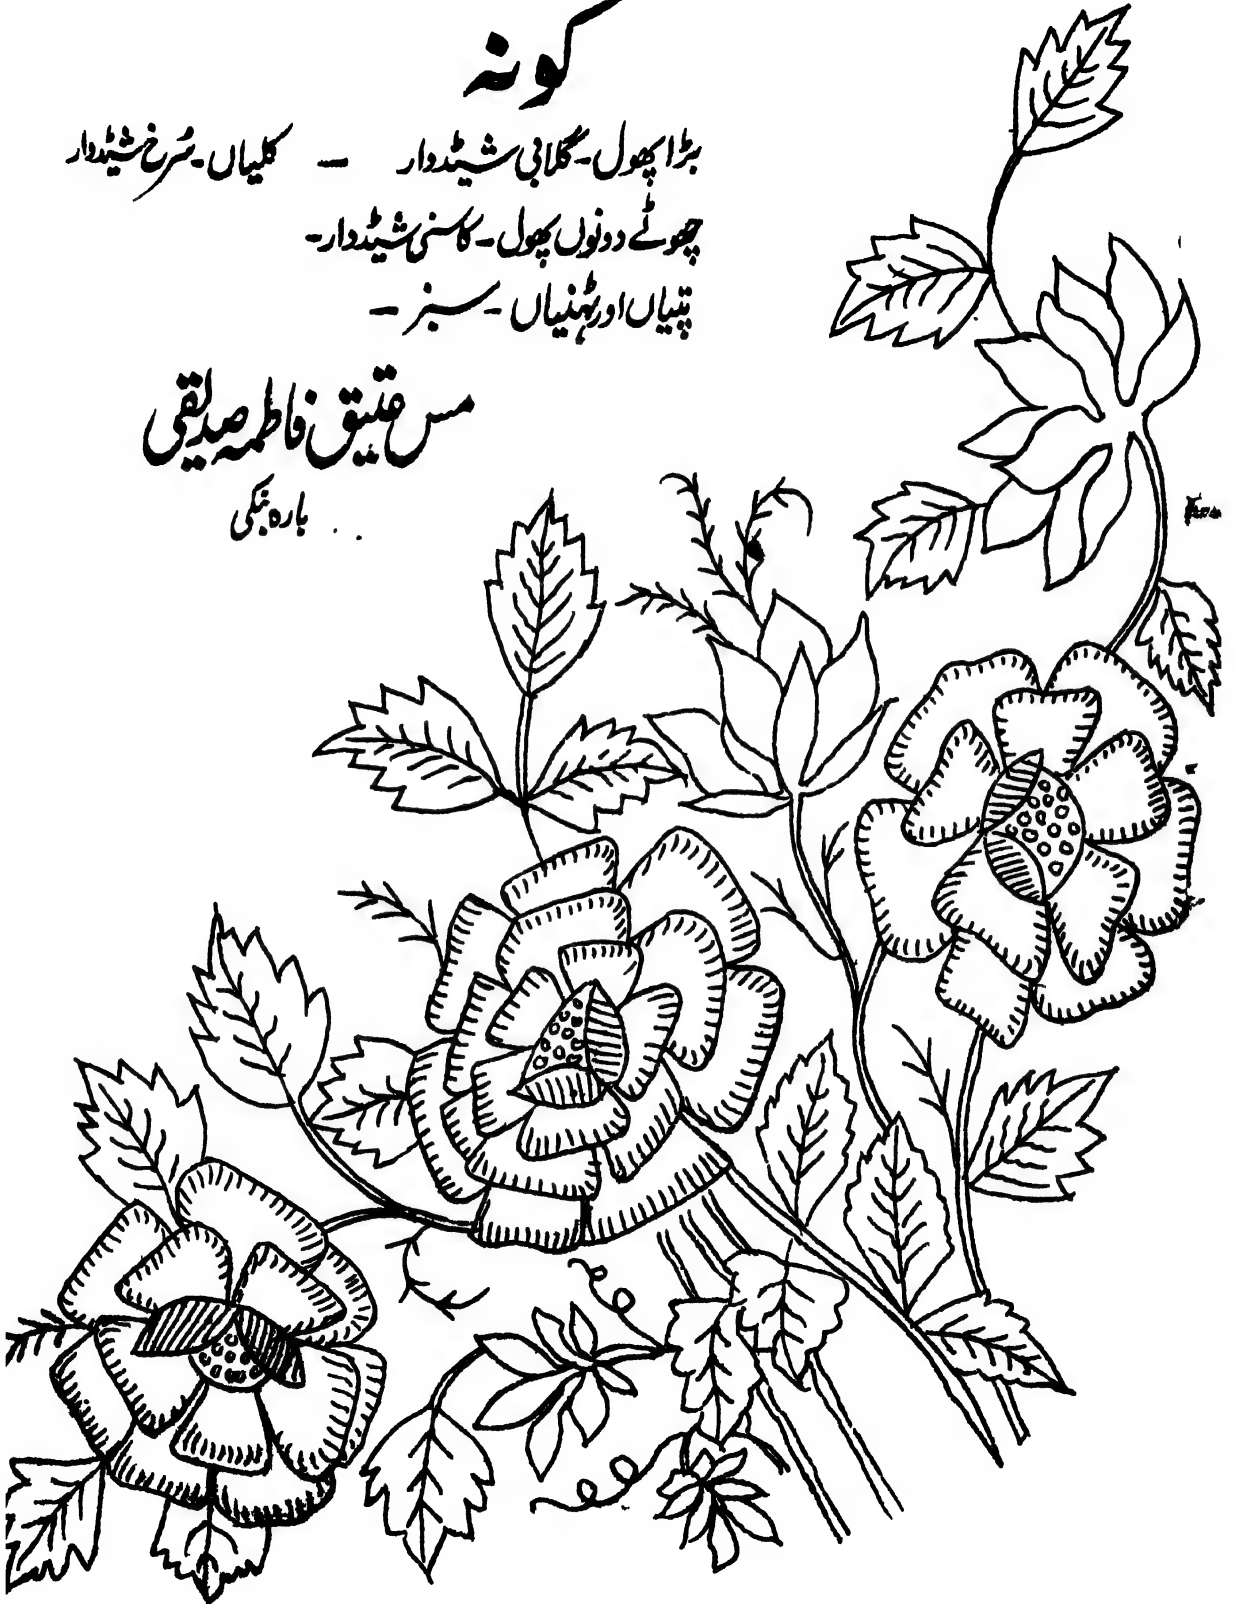 کونہ
بڑا پھول۔ گلابی شیڈدار — کلیاں۔ سُرخ شیڈدار
چھوٹے دونوں پھول۔ کاسنی شیڈدار۔
پتیاں اور ٹہنیاں۔ سبز —
مس عتیق فاطمہ صدیقی
بارہ بنکی